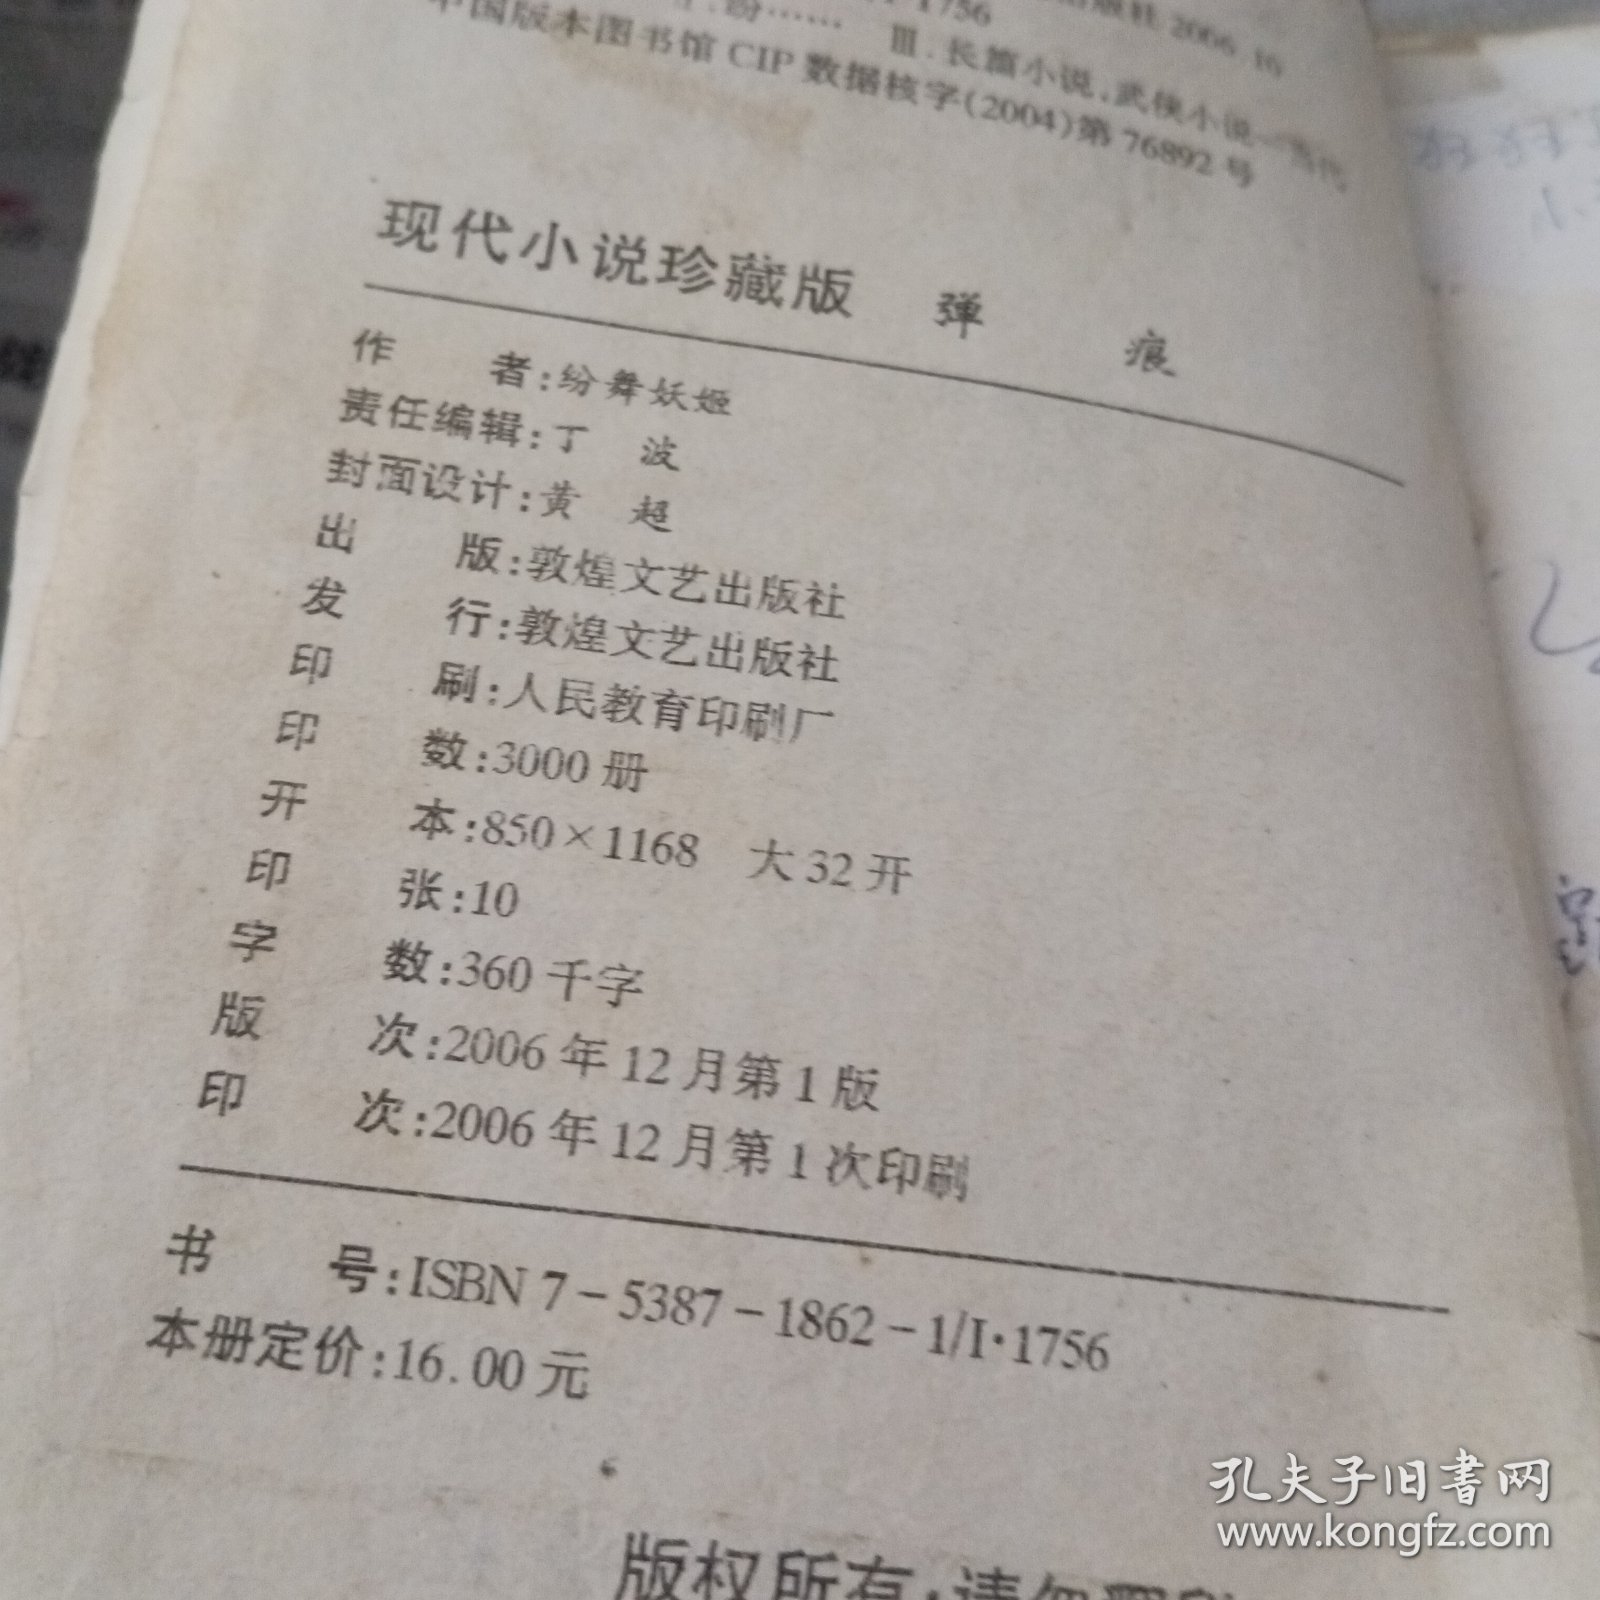 出版社 2006.10
1756
Ⅲ.长篇小说,武侠小说—当代
中国版本图书馆 CIP 数据核字(2004)第 76892 号
现代小说珍藏版 弹 痕
作 者:纷舞妖姬
责任编辑:丁 波
封面设计:黄 超
出 版:敦煌文艺出版社
发 行:敦煌文艺出版社
印 刷:人民教育印刷厂
印 数:3000 册
开 本:850×1168 大 32 开
印 张:10
字 数:360 千字
版 次:2006 年 12 月第 1 版
印 次:2006 年 12 月第 1 次印刷
书 号:ISBN 7-5387-1862-1/I·1756
本册定价:16.00 元
版权所有·请勿翻印
孔夫子旧书网
www.kongfz.com